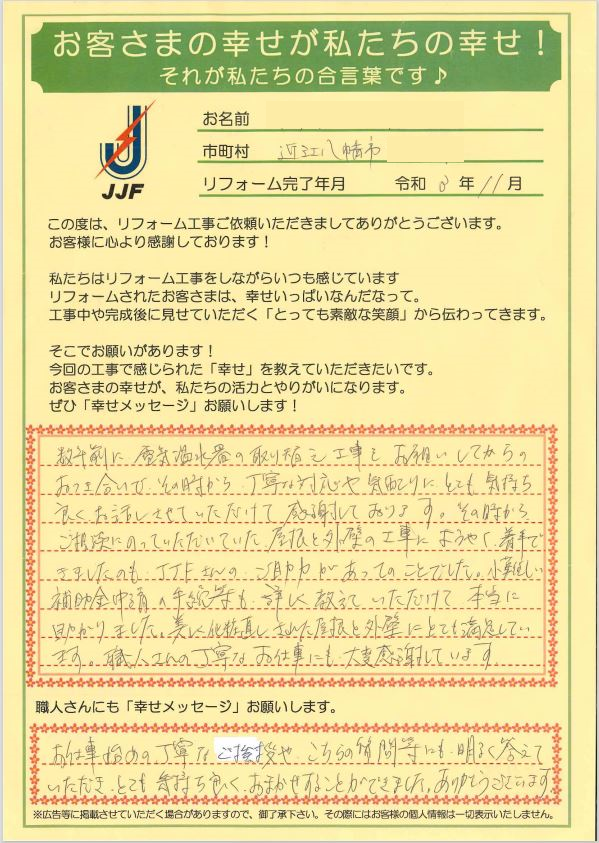 お客さまの幸せが私たちの幸せ！
それが私たちの合言葉です♪
JJF
お名前
市町村 近江八幡市
リフォーム完了年月 令和 3 年 11 月
この度は、リフォーム工事ご依頼いただきましてありがとうございます。
お客様に心より感謝しております！
私たちはリフォーム工事をしながらいつも感じています
リフォームされたお客さまは、幸せいっぱいなんだなって。
工事中や完成後に見せていただく「とっても素敵な笑顔」から伝わってきます。
そこでお願いがあります！
今回の工事で感じられた「幸せ」を教えていただきたいです。
お客さまの幸せが、私たちの活力とやりがいになります。
ぜひ「幸せメッセージ」お願いします！
数年前に電気温水器の取り替え工事をお願いしてからの
おつき合いで、その時から丁寧な対応や気配りにとても気持ち
良くお話しさせていただけて感謝しております。その時から
ご相談にのっていただいていた屋根と外壁の工事にようやく着手で
きましたのも、JJFさんのご助力があってのことでした。小難しい
補助金申請の手続等も、詳しく教えていただけて本当に
助かりました。美しく化粧直しされた屋根と外壁にとても満足してい
ます。職人さんの丁寧なお仕事にも大変感謝しています。
職人さんにも「幸せメッセージ」お願いします。
お仕事始めの丁寧なご挨拶や こちらの質問等にも明るく答えて
いただき、とても気持ち良く、おまかせすることができました。ありがとうございます
※広告等に掲載させていただく場合がありますので、御了承下さい。その際にはお客様の個人情報は一切表示いたしません。